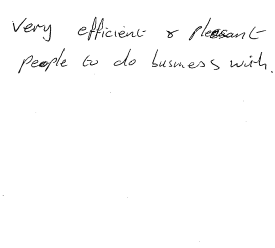 Very efficient & pleasant
people to do business with.